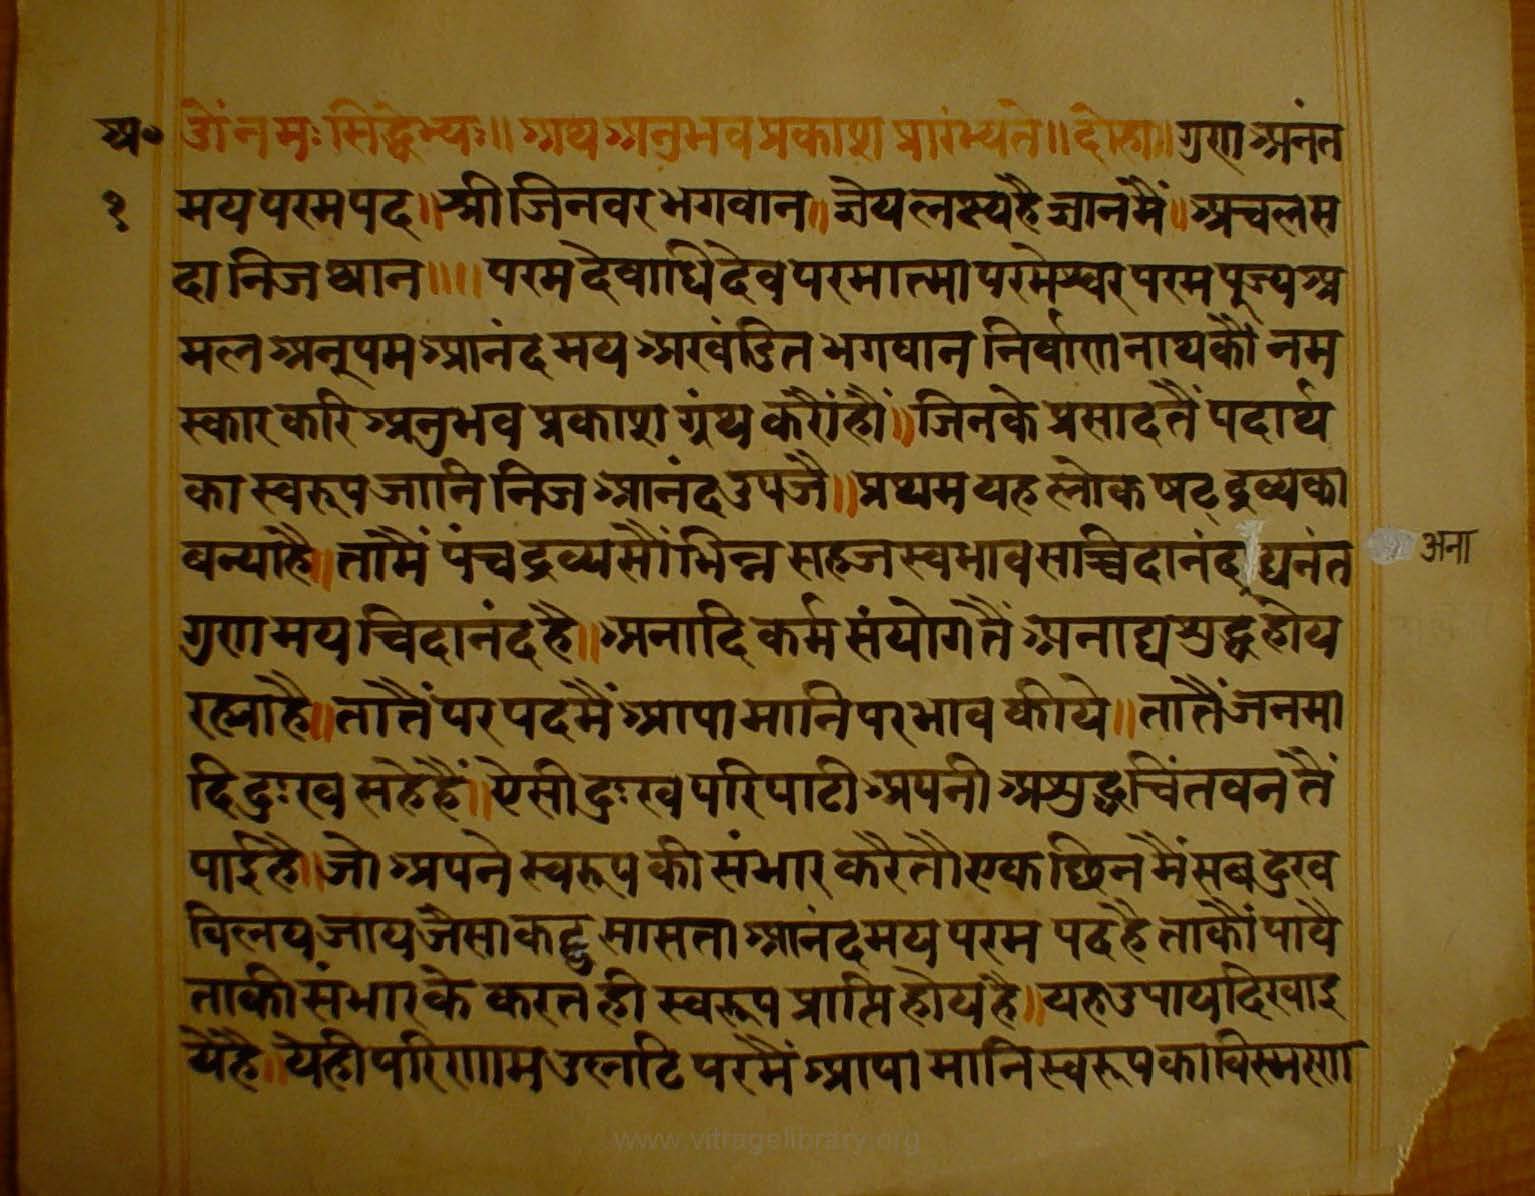 अ॰ ॐ नमः सिद्धेभ्यः॥ अथ अनुभवप्रकाश प्रारंभ्यते॥ दोहा॥ गुण अनंत
१ मय परम पद॥ श्री जिनवर भगवान॥ ज्ञेय लक्ष्य है ज्ञानमैं॥ अचल स
दा निज थान॥॥ परम देवाधिदेव परमात्मा परमेश्वर परम पूज्य अ
मल अनूपम आनंदमय अखंडित भगवान निर्वाण नाथकौं नम
स्कार करि अनुभव प्रकाश ग्रंथ करौं हौं॥ जिनके प्रसादतैं पदार्थ
का स्वरूप जानि निज आनंद उपजै॥ प्रथम यह लोक षट् द्रव्यका
बन्या है॥ तामैं पंच द्रव्यसौं भिन्न सहज स्वभाव सच्चिदानंद द्यनंत अना
गुण मय चिदानंद है॥ अनादि कर्म संयोगतैं अनाद्य शुद्ध होय
रह्या है॥ तातैं पर पदमैं आपा मानि परभाव कीये॥ तातैं जनमा
दि दुःख सहे हैं॥ ऐसी दुःख परिपाटी अपनी अशुद्ध चिंतवनतैं
पाई है॥ जो अपने स्वरूपकी संभार करै तौ एक छिनमैं सब दुख
विलय जाय जैसा कछु सासता आनंदमय परम पद है ताकौं पावै
ताकी संभारके करत ही स्वरूप प्राप्ति होय है॥ यह उपाय दिखाइ
ये है॥ येही परिणाम उलटि परमैं आपा मानि स्वरूपका विस्मरण
www.vitragelibrary.org